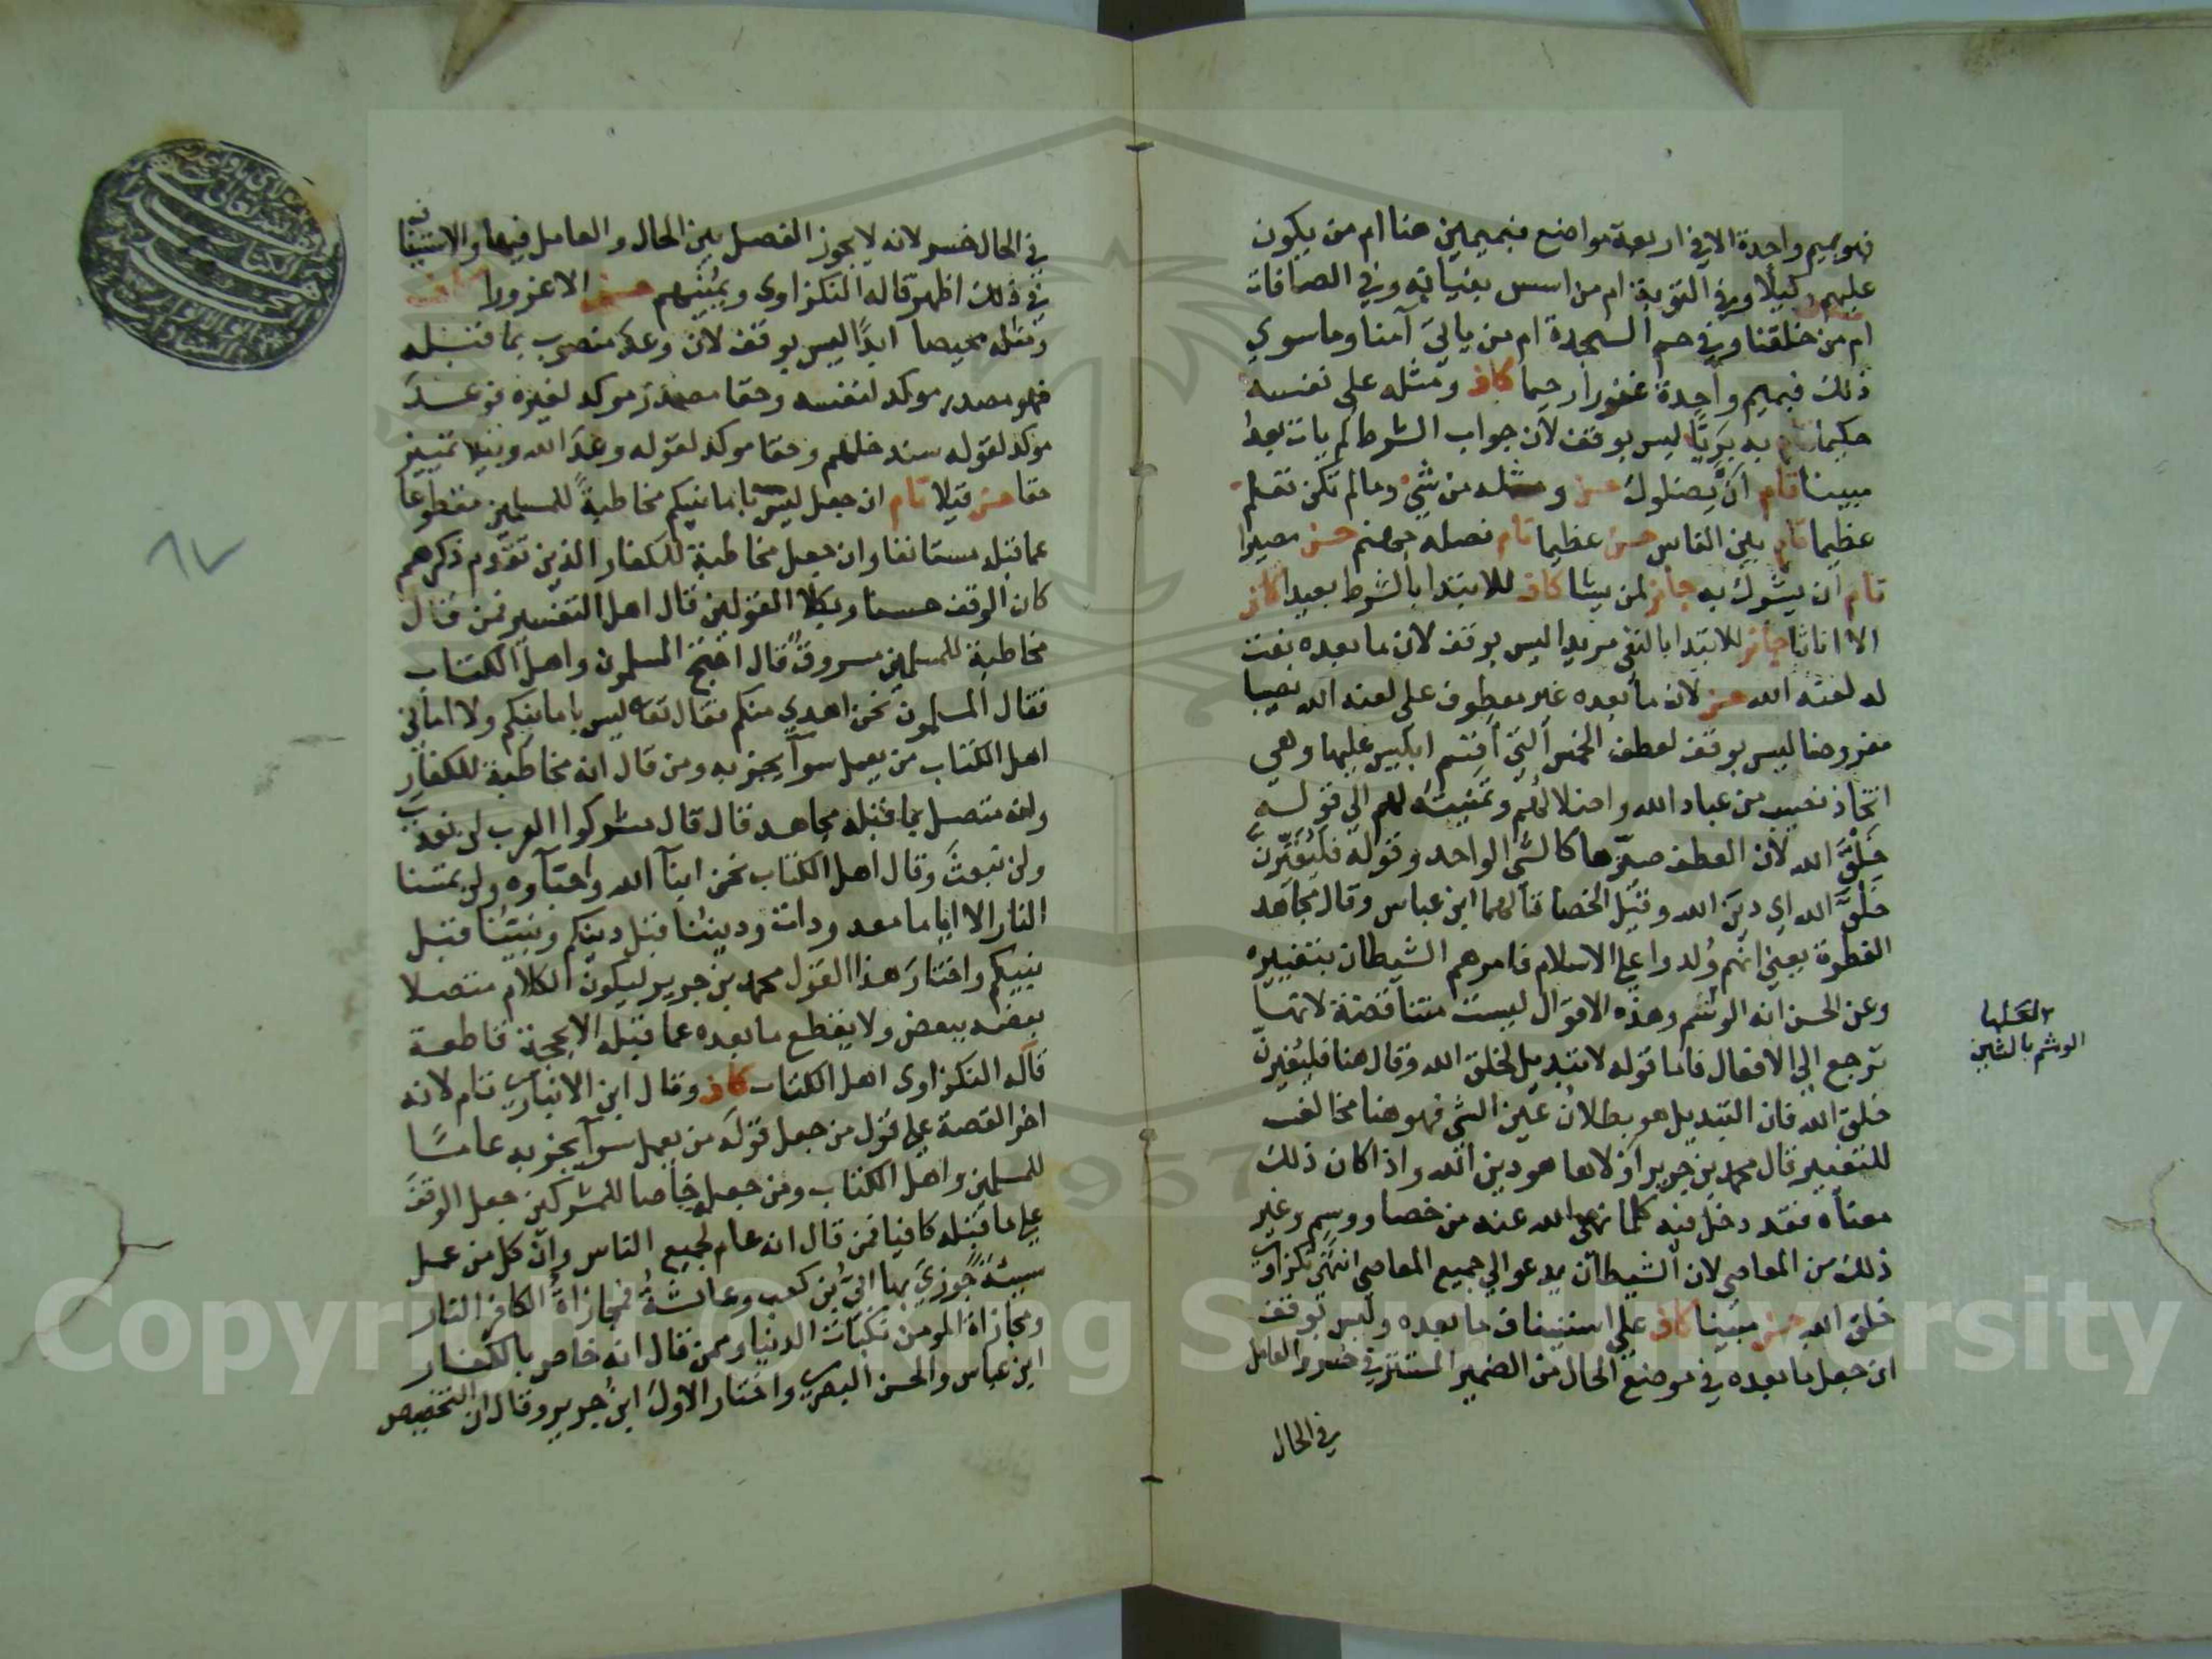 فهو بميم واحدة الا في اربعة مواضع فبميمين هنا ام من يكون
عليهم وكيلا وفي التوبة ام من اسس بنيانه وفي الصافات
ام من خلقنا وفي حم السجدة ام من ياتي آمنا وما سوي
ذلك فبميم واحدة غفورا رحيما كاف ومثله على نفسه
حكيما تام به بريًّا ليس بوقف لان جواب الشرط لم يات بعد
مبينا تام ان يضلوك حسن ومثله من شيء وما لم تكن تعلم
عظيما تام بين الناس حسن عظيما تام نصله جهنم حسن مصيرا
تام ان يشرك به جائز لمن يشا كاف للابتدا بالشرط بعيدا كاف
الا اناثا جائز للابتدا بالنفي مريدا ليس بوقف لان ما بعده نعت
له لعنه الله حسن لان ما بعده غير معطوف على لعنه الله نصيبا
مفروضا ليس بوقف لعطف الخمس التي اقسم ابليس عليها وهي
اتخاذ نصيب من عباد الله واضلالهم وتمنيته لهم الي قوله
خَلْقَ الله لان العطف صيّرها كالشي الواحد وقوله فليغيّرن
خلق الله اي دين الله وقيل الخصا قالهما ابن عباس وقال مجاهد
الفطرة يعني انهم وُلدوا علي الاسلام فامرهم الشيطان بتغييره
وعن الحسن انه الوشم وهذه الاقوال ليست متناقضة لانها
ترجع الي الافعال فاما قوله لا تبديل لخلق الله وقال هنا فليغيرن
خلق الله فان التبديل هو بطلان عين الشي فهو هنا مخالف
للتغيير قال محمد بن جرير اولاها هو دين الله واذا كان ذلك
معناه فقد دخل فيه كلما نهى الله عنه من خصا ووسم وغير
ذلك من المعاصي لان الشيطان يدعو الي جميع المعاصي انتهى نكزاوي
خلق الله حسن مبينا كاف علي استيناف ما بعده وليس بوقف
ان جعل ما بعده في موضع الحال من الضمير المستتر في خسر والعامل
في الحال
الوشم بالشين
في الحال خسر لانه لا يجوز الفصل بين الحال والعامل فيها والاستيناف
في ذلك اظهر قاله النكزاوي ويمنيهم حسن الا غرورا كاف
ومثله محيصا ابدًا ليس بوقف لان وعد منصوب بما قبله
فهو مصدر موكد لنفسه وحقا مصدر موكد لغيره فوعدَ
موكد لقوله سندخلهم وحقا موكد لقوله وعدَ الله وقيلا تمييز
حقا حسن قيلا تام ان جعل ليس بامانيكم مخاطبةً للمسلمين مقطوعا
عما قبله مستانفا وان جعل مخاطبة للكفار الذين تقدم ذكرهم
كان الوقف حسنا وبكلا القولين قال اهل التفسير فمن قال
مخاطبة للمسلمين مسروق قال احتج المسلمون واهل الكتاب
فقال المسلمون نحن اهدي منكم فقال تعه ليس بامانيكم ولا اماني
اهل الكتاب من يعمل سوآ يجز به ومن قال انه مخاطبة للكفار
وانه متصل بما قبله مجاهد قال قال مشركوا العرب لن نعذب
ولن نبعث وقال اهل الكتاب نحن ابنآ الله واحبآوه ولن تمسنا
النار الا اياما معدودات وديننا قبل دينكم ونبينا قبل
نبيكم واختار هذا القول محمد بن جرير ليكون الكلام متصلا
بعضه ببعض ولا يقطع ما بعده عما قبله الا بحجة قاطعة
قاله النكزاوي اهل الكتاب كاف وقال ابن الانباري تام لانه
اخر القصة علي قول من جعل قوله من يعمل سوآ يجز به عامًّا
للمسلمين واهل الكتاب ومن جعله خاصا للمشركين جعل الوقف
علي ما قبله كافيا فمن قال انه عام لجميع الناس وان كل من عمل
سيئة جُوزيَ بها ابيّ بن كعب وعائشة فمجازاة الكافر النار
ومجازاة المومن نكبات الدنيا وممن قال انه خاص بالكفار
ابن عباس والحسن البصري واختار الاول ابن جرير وقال ان التخصيص
Copyright © King Saud University
1957